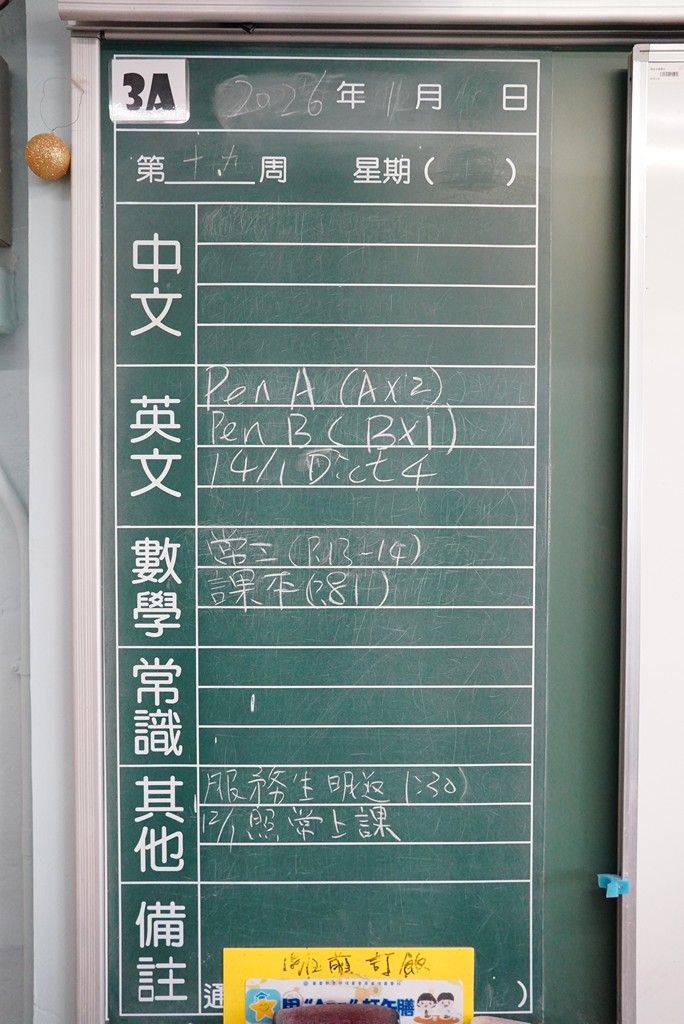 3A
2026年 1月 日
第十九周 星期( )
中文
英文
Pen A (A×2)
Pen B (B×1)
14/1 Dict 4
數學
常工(P.13-14)
課本(P.81)
常識
其他
服務生明返(1:30)
12/1照常上課
備註
通
訂飯